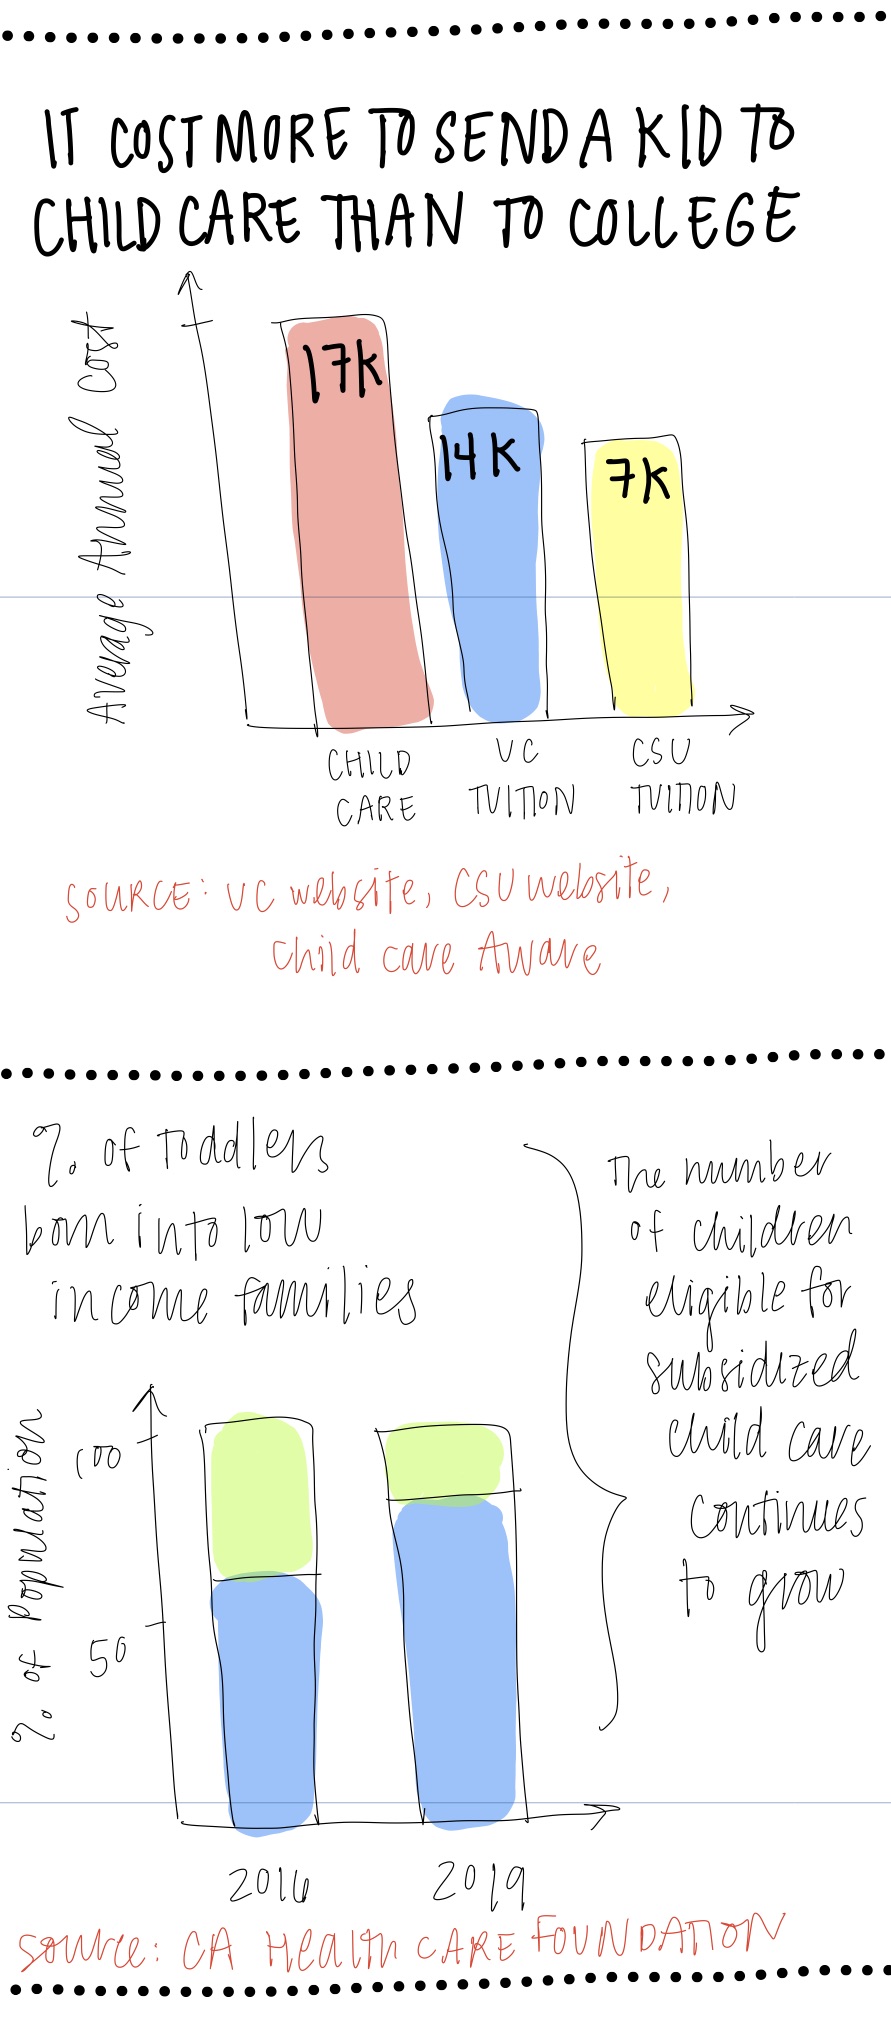 IT COST MORE TO SEND A KID TO
CHILD CARE THAN TO COLLEGE
Average Annual Cost
17K
14K
7K
CHILD
CARE
UC
TUITION
CSU
TUITION
SOURCE: UC website, CSU website,
Child care Aware
% of toddlers
born into low
income families
The number
of children
eligible for
subsidized
child care
continues
to grow
% of Population
100
50
2016
2019
Source: CA Health CARE FOUNDATION